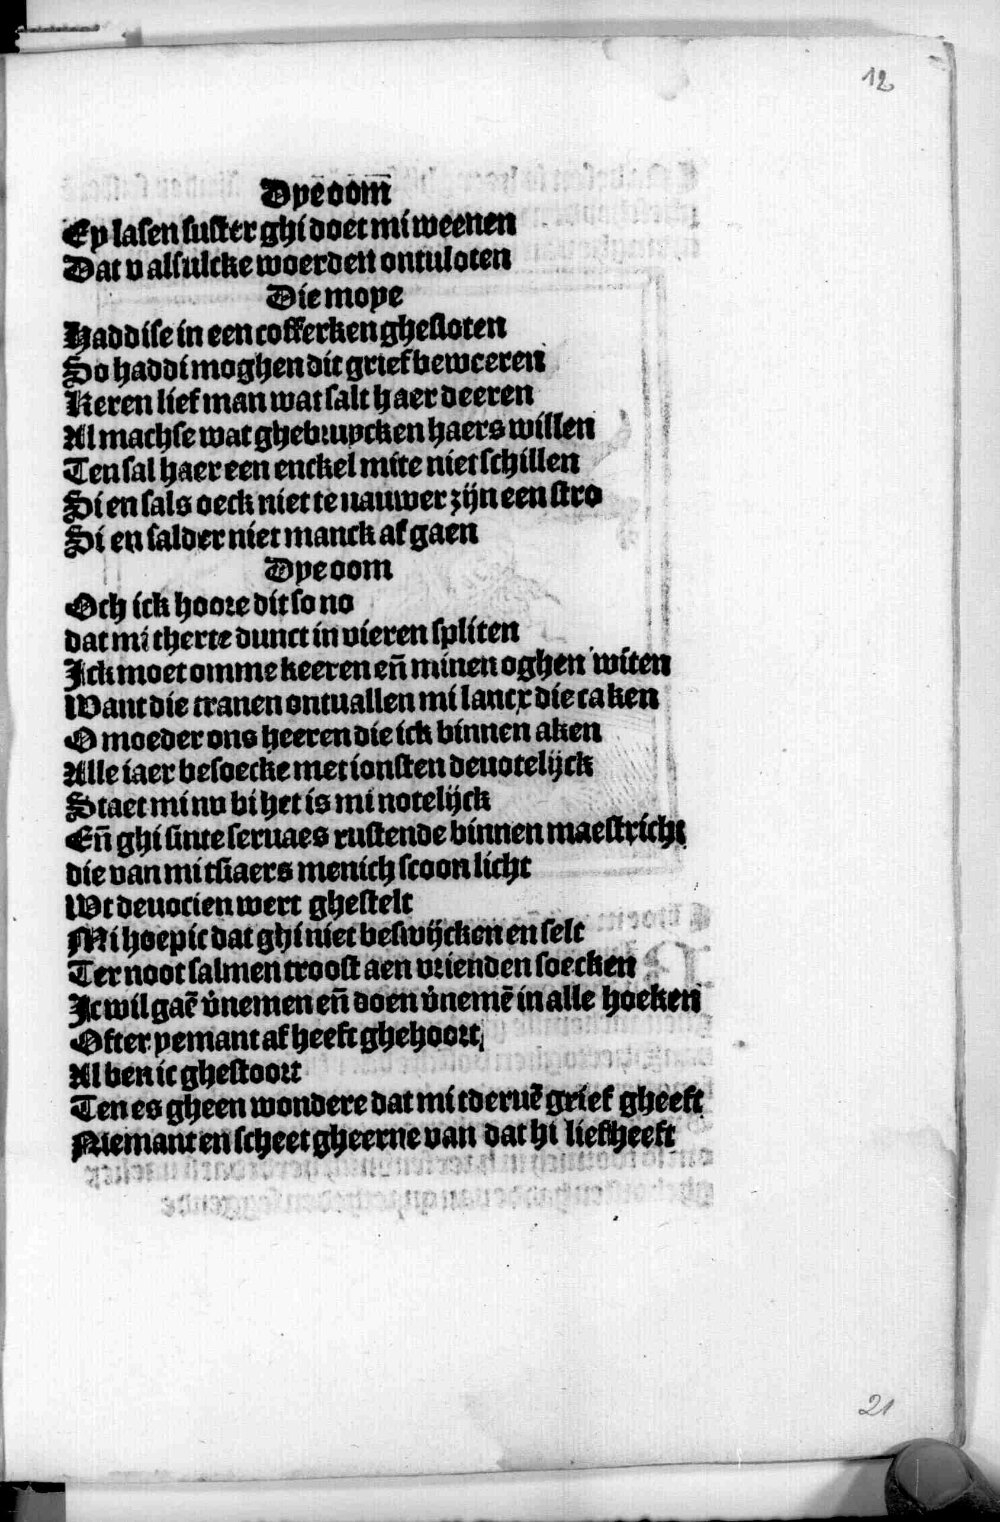 12
Dyē oom̅
Ey lasen suster ghi doet mi weenen
Dat v alsulcke woerden ontuloten
Die moye
Haddise in een cofferken ghesloten
So haddi moghen dit grief beweeren
Keren lief man wat salt haer deeren
Al machse wat ghebruycken haers willen
Ten sal haer een enckel mite niet schillen
Si en sals oeck niet te nauwer zijn een stro
Si en salder niet manck af gaen
Dye oom
Och ick hoore dit so no
dat mi therte dunct in vieren spliten
Ick moet omme keeren en̄ minen oghen witen
Want die tranen ontuallen mi lancx die caken
O moeder ons heeren die ick binnen aken
Alle iaer besoecke met ionsten deuotelijck
Staet mi nv bi het is mi notelijck
En̄ ghi sinte seruaes rustende binnen maestricht
die van mi tsiaers menich scoon licht
Wt deuocien wert ghestelt
Mi hoepic dat ghi niet beswijcken en selt
Ter noot salmen troost aen vrienden soecken
Ic wil gaē v̉nemen en̄ doen v̉nemē in alle hoeken
Ofter yemant af heeft ghehoort
Al ben ic ghestoort
Ten es gheen wondere dat mi tderuē grief gheeft
Niemant en scheet gheerne van dat hi liefheeft
21